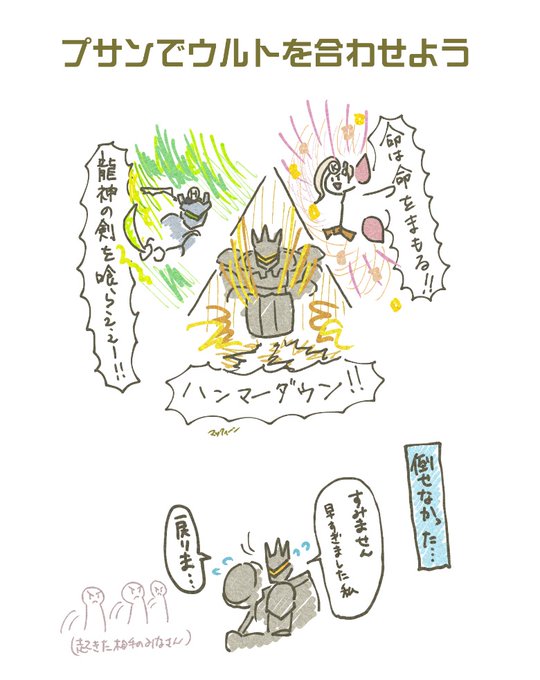 プサンでウルトを合わせよう
命は命をまもる!!
龍神の剣を喰らえェー!!!
ハンマーダウン!!
マックィーン
倒せなかった…
すみません
早すぎました私
戻りま…
(起きた相手のみなさん)